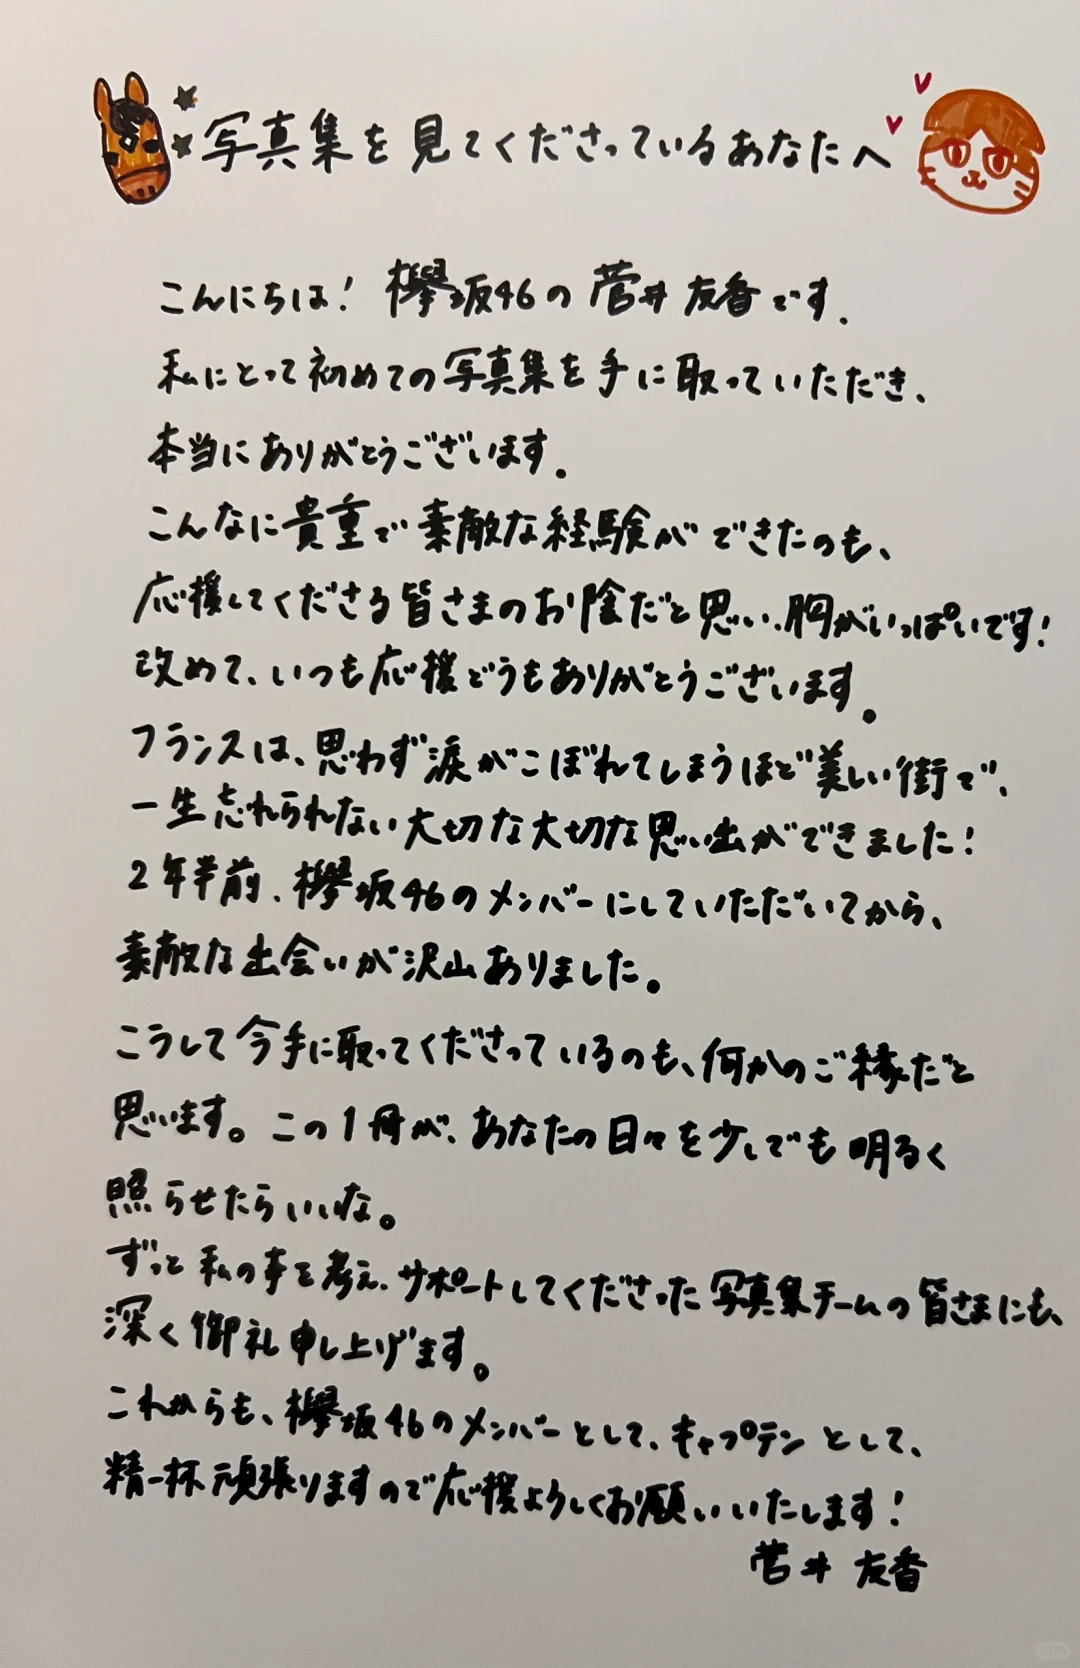 写真集を見てくださっているあなたへ
こんにちは！欅坂46の菅井友香です.
私にとって初めての写真集を手に取っていただき、
本当にありがとうございます.
こんなに貴重で素敵な経験ができたのも、
応援してくださる皆さまのお陰だと思い、胸がいっぱいです！
改めて、いつも応援どうもありがとうございます。
フランスは、思わず涙がこぼれてしまうほど美しい街で、
一生忘れられない大切な大切な思い出ができました！
2年半前、欅坂46のメンバーにしていただいてから、
素敵な出会いが沢山ありました。
こうして今手に取ってくださっているのも、何かのご縁だと
思います。この1冊が、あなたの日々を少しでも明るく
照らせたらいいな。
ずっと私の事を考え、サポートしてくださった写真集チームの皆さまにも、
深く御礼申し上げます。
これからも、欅坂46のメンバーとして、キャプテンとして、
精一杯頑張りますので応援よろしくお願いいたします！
菅井友香